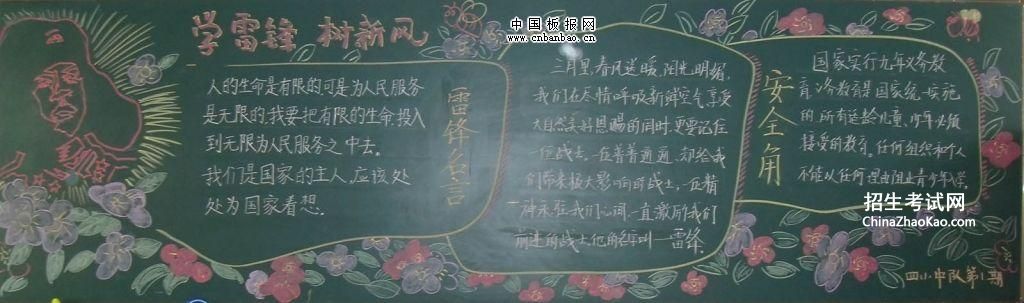 学雷锋 树新风
中国板报网
www.cnbanbao.cn
人的生命是有限的可是为人民服务
是无限的,我要把有限的生命,投入
到无限为人民服务之中去。
我们是国家的主人,应该处
处为国家着想。
雷锋名言
三月里,春风送暖,阳光明媚,
我们在尽情呼吸新鲜空气享受
大自然美好恩赐的同时,更要记住
一位战士。一位普普通通,却给我
们带来极大影响的战士,一位精
神永驻我们心间,一直激励我们
前进的战士他的名叫—雷锋
安全角
国家实行九年义务教
育,义务教育是国家统一实施
的,所有适龄儿童、少年必须
接受的教育。任何组织和个人
不能以任何理由阻止青少年入学。
招生考试网
ChinaZhaoKao.com
四小中队第1期